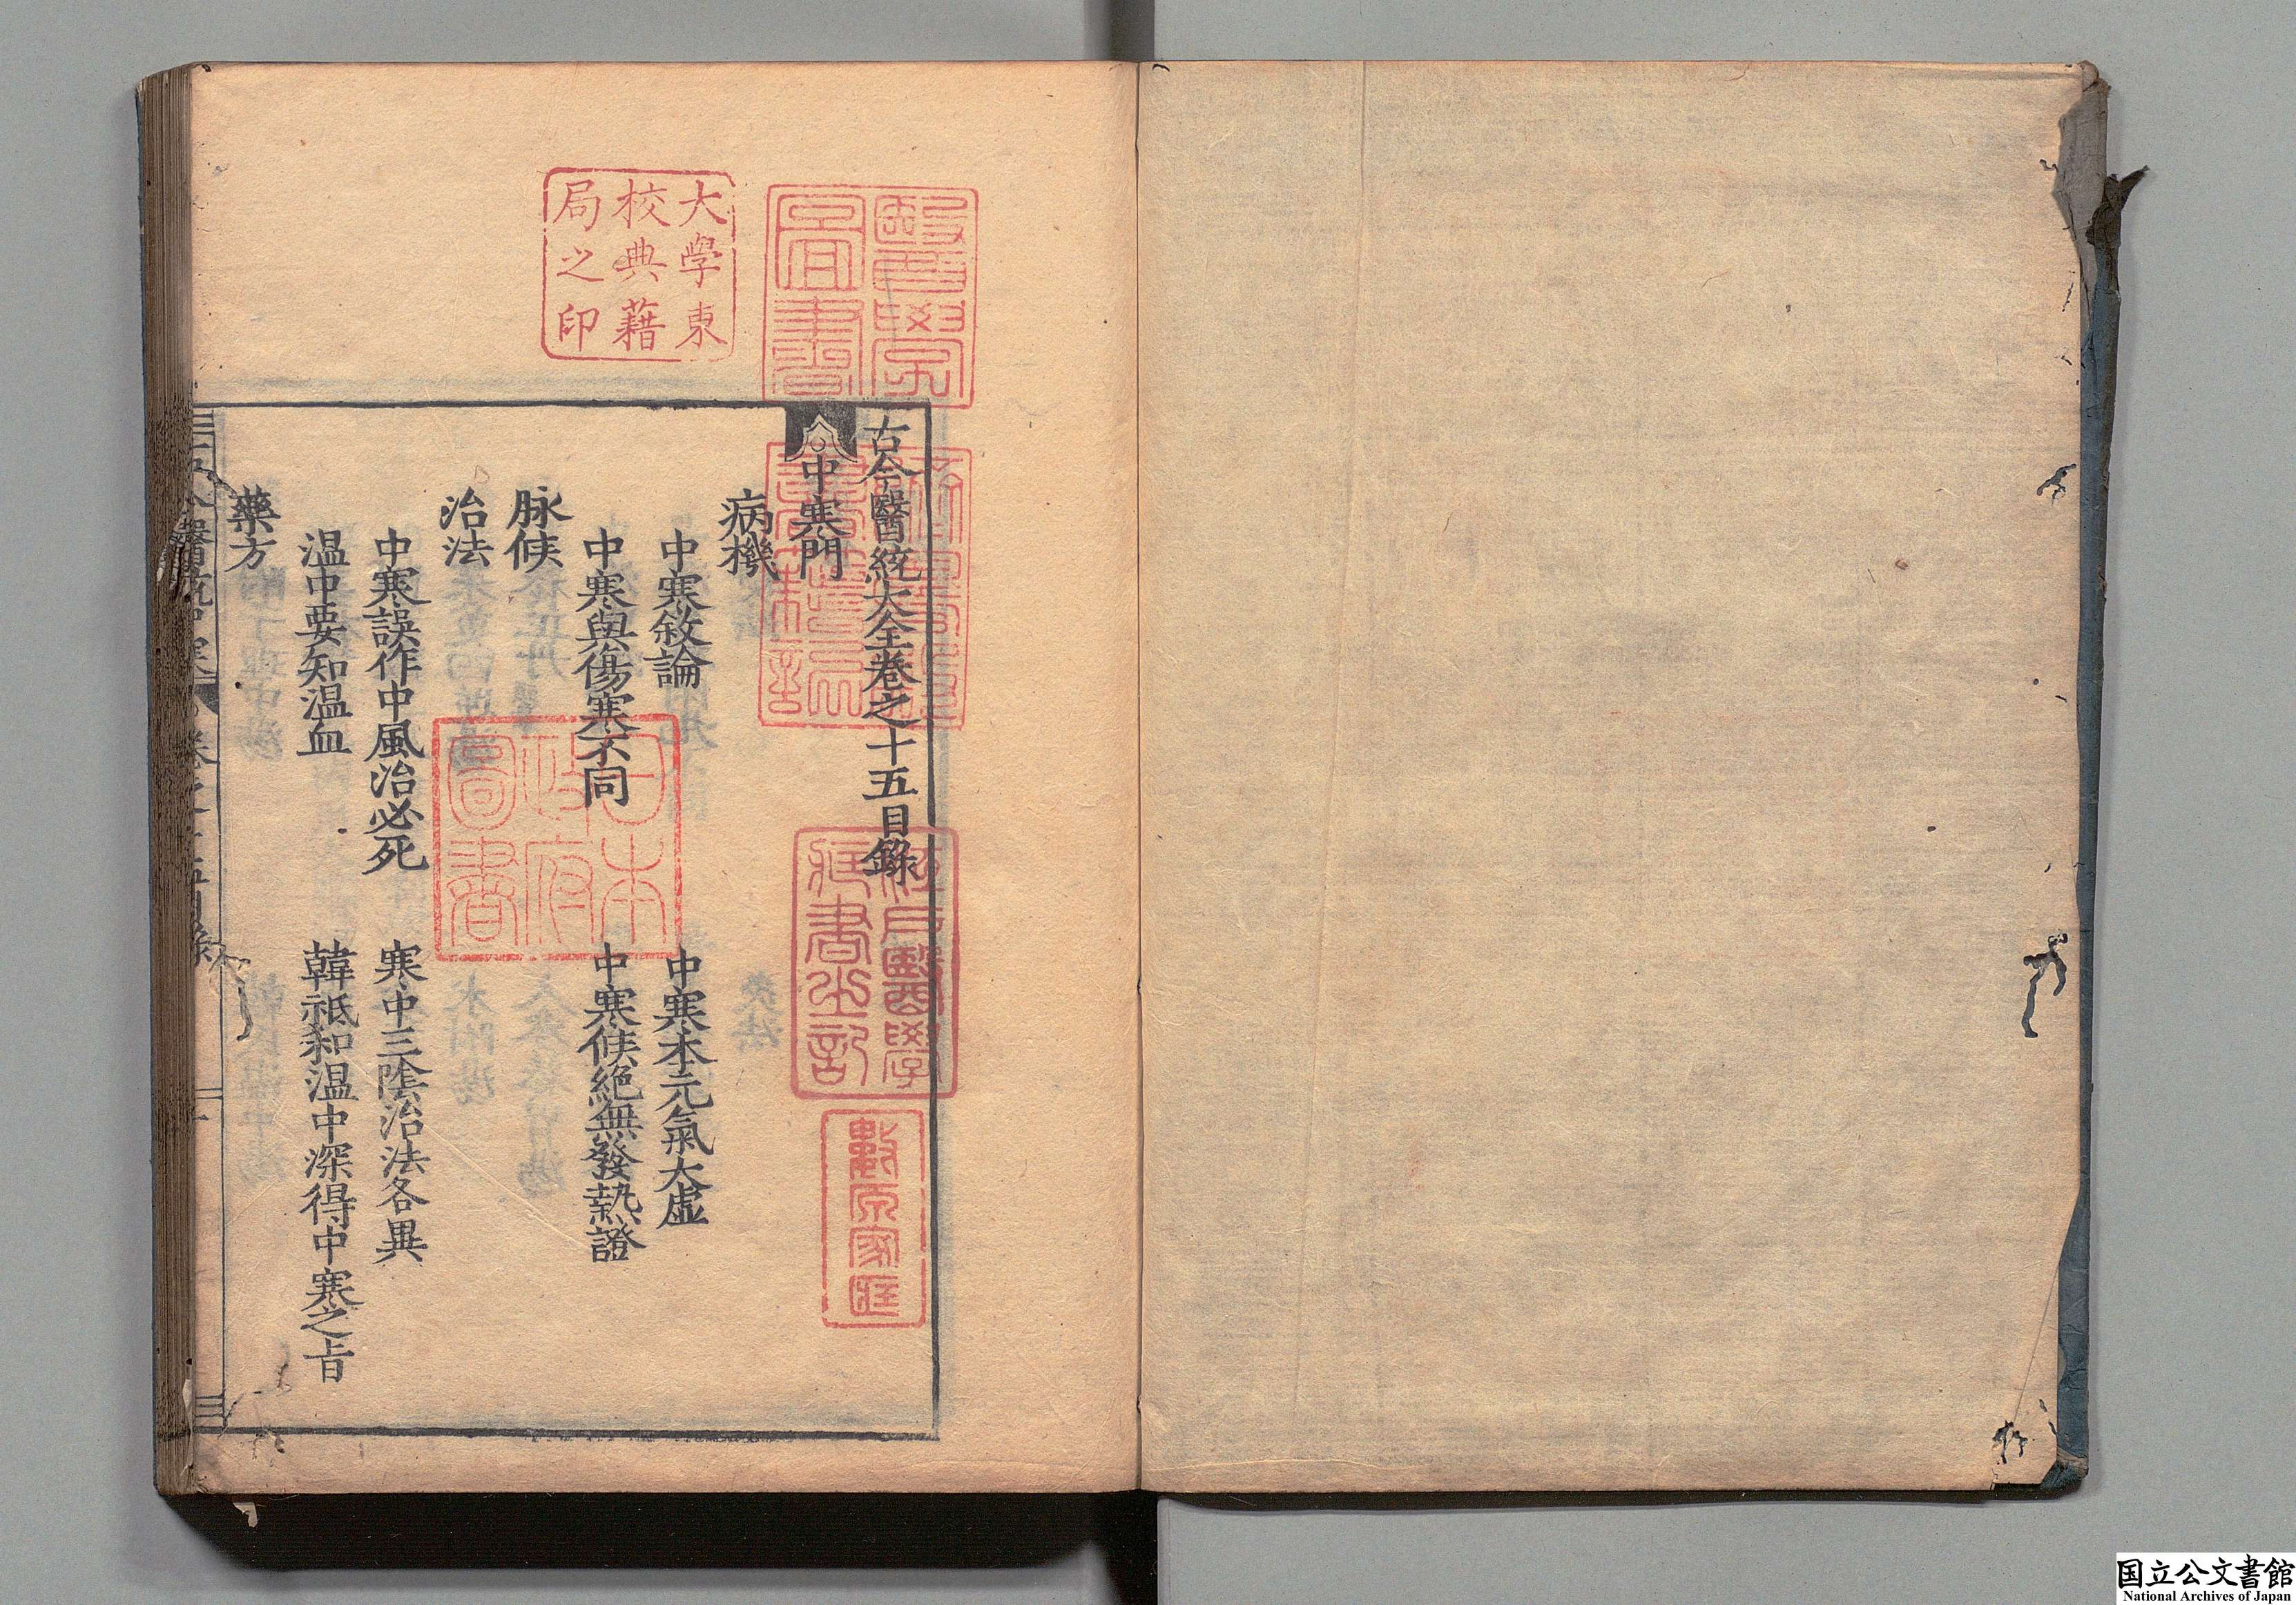 古今醫統大全卷之十五目錄
中寒門
病機
中寒敘論 中寒本元氣大虛
中寒與傷寒不同 中寒候絕無發熱證
脉候
治法
中寒誤作中風治必死 寒中三陰治法各異
温中要知温血 韓祗和温中深得中寒之旨
藥方
大學東
校典藉
局之印
醫學
圖書
日本
政府
圖書
江戶醫學
藏書之記
國立公文書館
National Archives of Japan